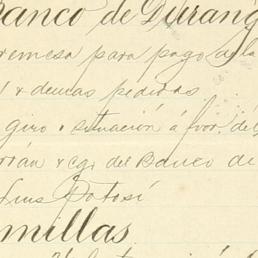 Banco de Durang
remesa para pago de la
y demas pedidos
giro o situación á fvor. de
rián y Cª del Banco de
Luis Potosí
millas